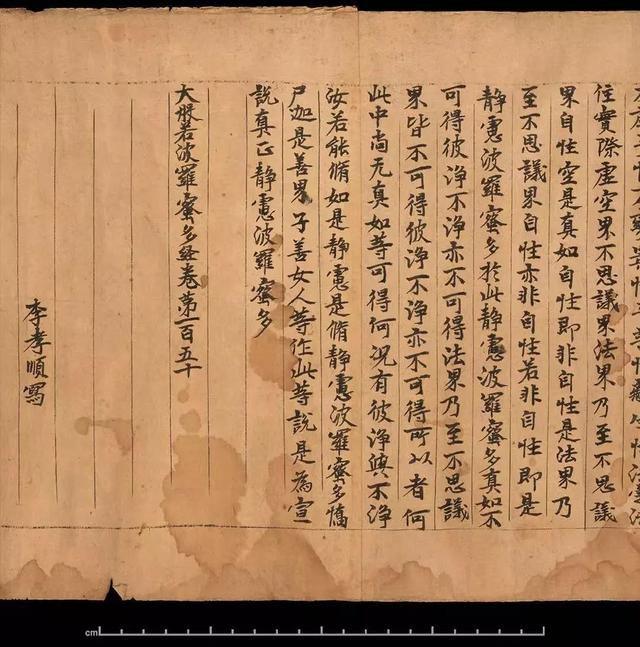 住實際虛空界不思議界法界乃至不思議
界自性空是真如自性即非自性是法界乃
至不思議界自性亦非自性若非自性即是
靜慮波羅蜜多於此靜慮波羅蜜多真如不
可得彼淨不淨亦不可得法界乃至不思議
界皆不可得彼淨不淨亦不可得所以者何
此中尚无真如等可得何況有彼淨與不淨
汝若能脩如是靜慮是脩靜慮波羅蜜多憍
尸迦是善男子善女人等作此等說是為宣
說真正靜慮波羅蜜多
大般若波羅蜜多經卷第一百五十
李孝順寫
cm